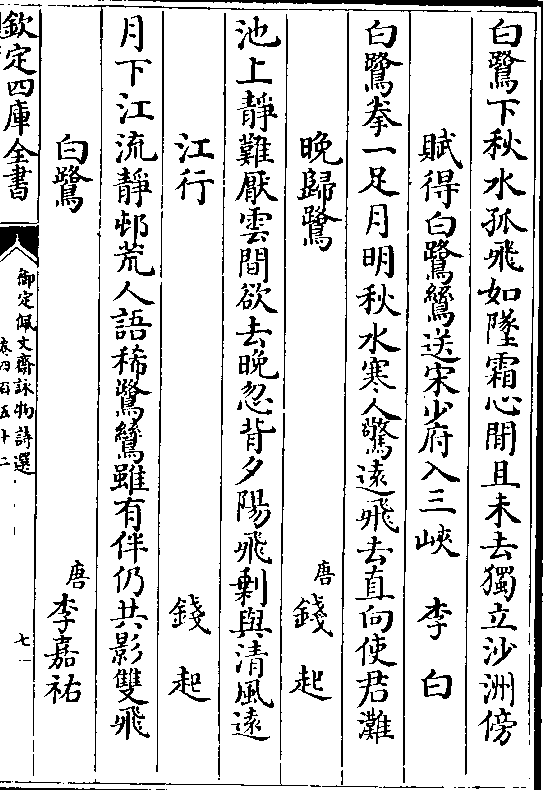 白鷺下秋水孤飛如墜霜心閒且未去獨立沙洲傍
賦得白鷺鷥送宋少府入三峽　李白
白鷺拳一足月明秋水寒人驚遠飛去直向使君灘
晚歸鷺　唐　錢起
池上靜難厭雲間欲去晚忽背夕陽飛剩與清風遠
江行　錢起
月下江流靜邨荒人語稀鷺鷥雖有伴仍共影雙飛
白鷺　唐　李嘉祐
欽定四庫全書
御定佩文齋詠物詩選
卷四百五十二
七